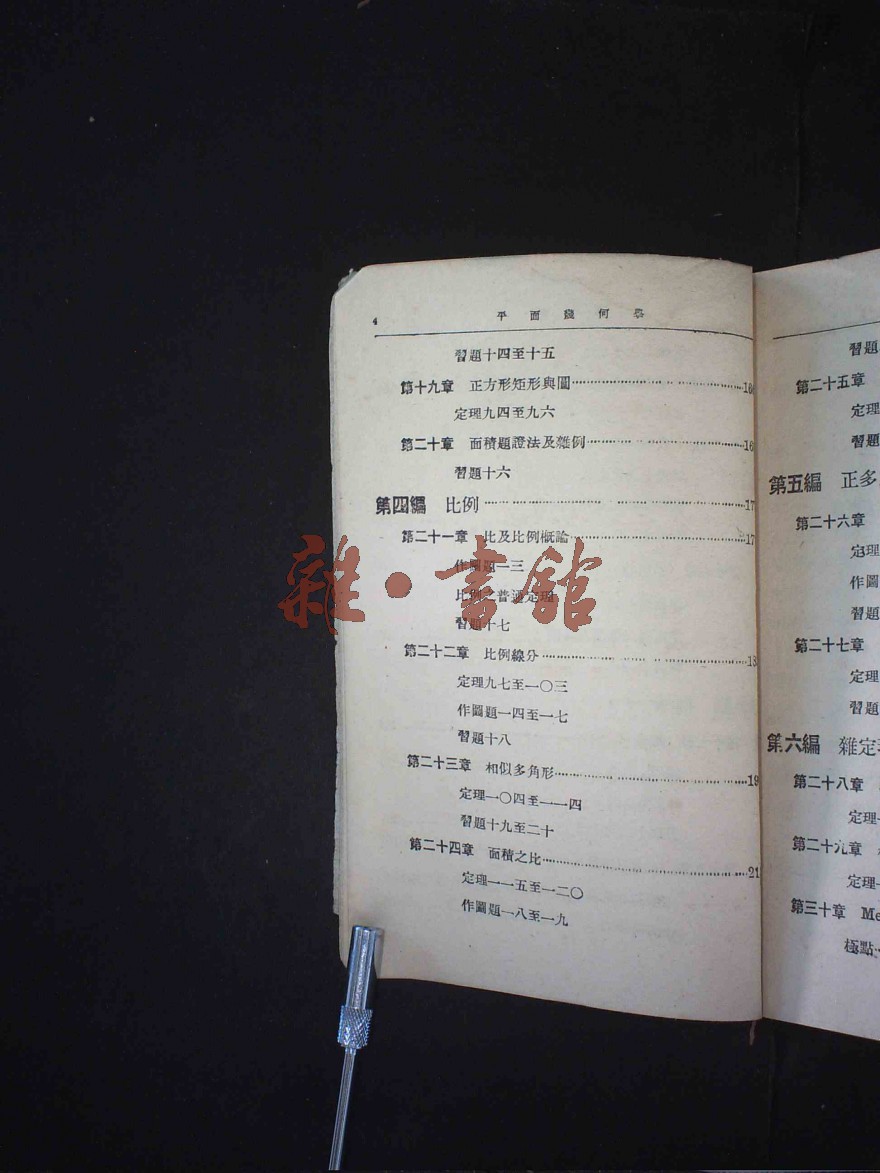 4 平面幾何學
習題十四至十五
第十九章 正方形矩形與圓……16
定理九四至九六
第二十章 面積題證法及雜例……16
習題十六
第四編 比例……17
第二十一章 比及比例概論……17
作圖題一三
比例之普通定理
習題十七
第二十二章 比例線分……18
定理九七至一〇三
作圖題一四至一七
習題十八
第二十三章 相似多角形……19
定理一〇四至一一四
習題十九至二十
第二十四章 面積之比……21
定理一一五至一二〇
作圖題一八至一九
雜·書館
習題
第二十五章
定理
習題
第五編 正多
第二十六章
定理
作圖
習題
第二十七章
定理
習題
第六編 雜定
第二十八章
定理一
第二十九章
定理一
第三十章 Me
極點